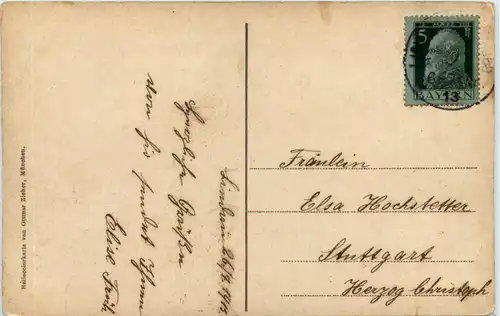 Helicolorkarte von Ottmar Zieher, München.
Lindau 26/7 1913
Herzliche Grüßen
von hir sendet Ihnen
Elise
5 Pf
BAYERN
13
Fräulein
Elsa Hochstetter
Stuttgart
Herzog Christoph